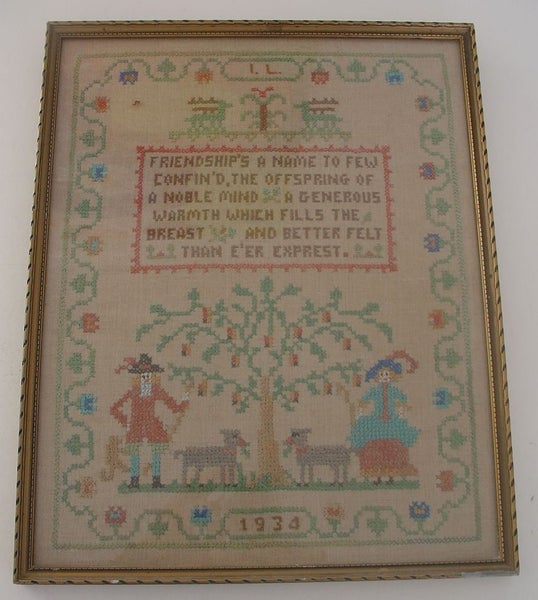 I.L.
FRIENDSHIP'S A NAME TO FEW
CONFIN'D, THE OFFSPRING OF
A NOBLE MIND A GENEROUS
WARMTH WHICH FILLS THE
BREAST AND BETTER FELT
THAN E'ER EXPREST.
1934